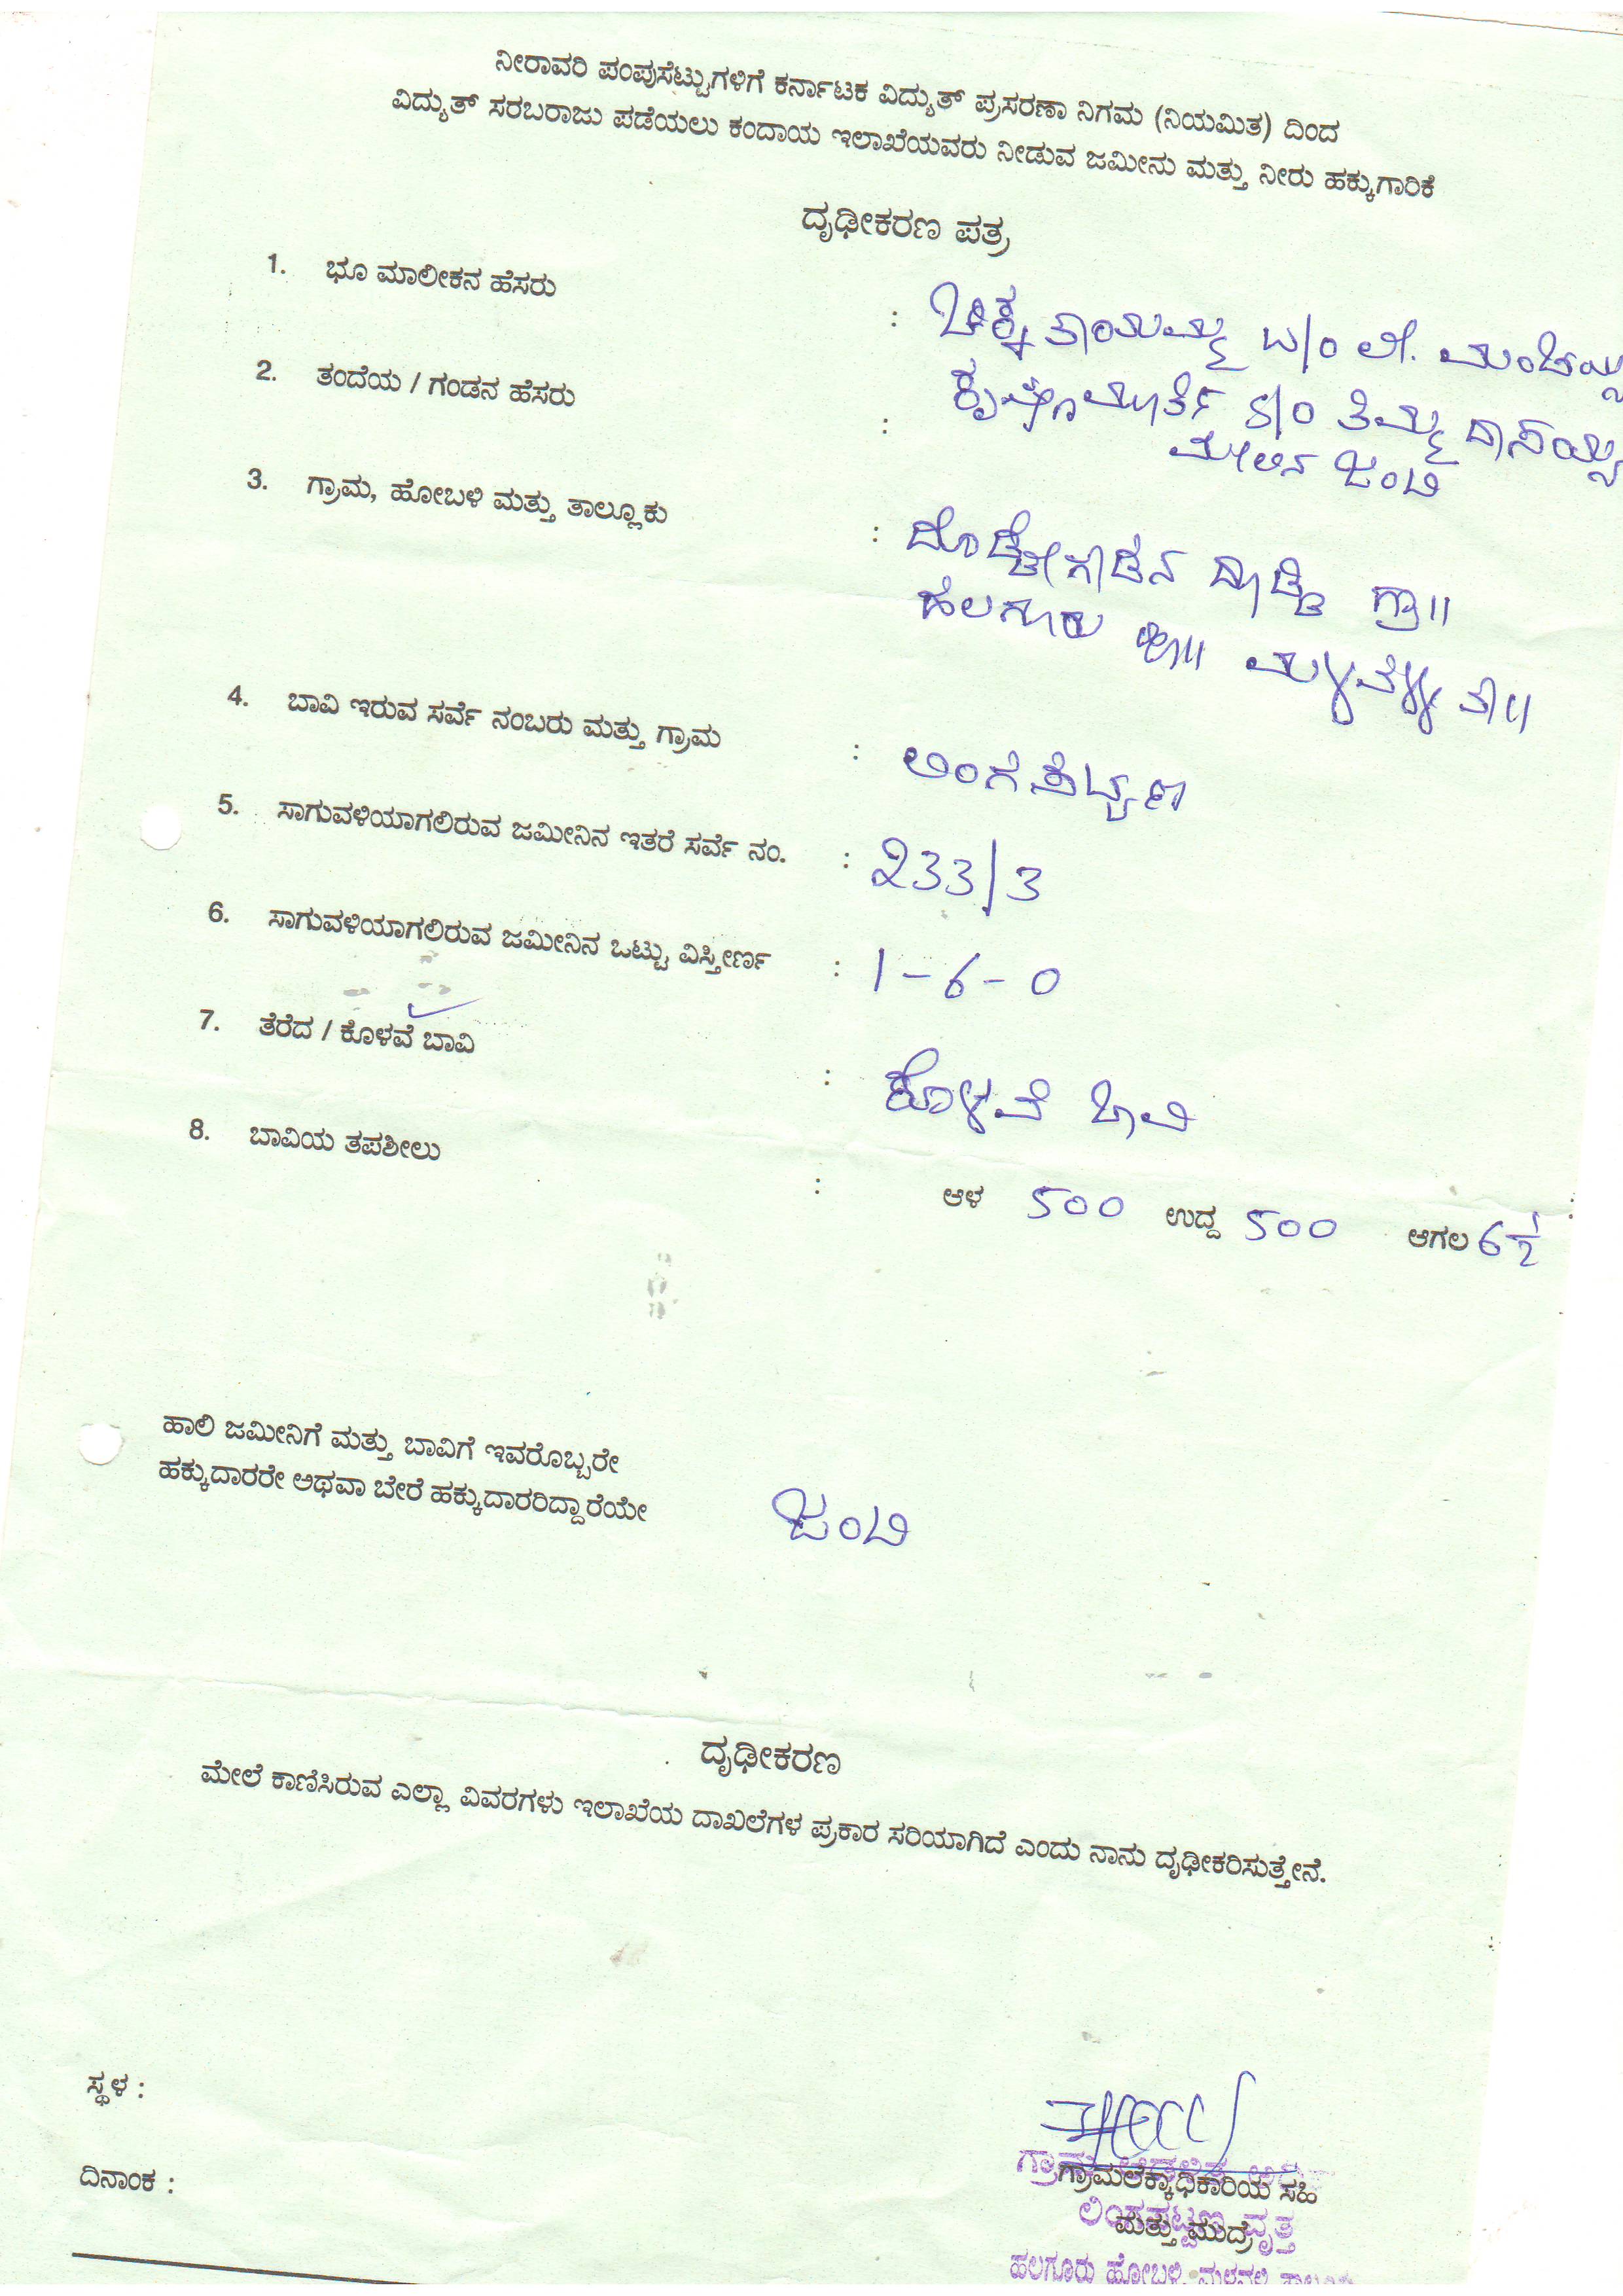 ನೀರಾವರಿ ಪಂಪುಸೆಟ್ಟುಗಳಿಗೆ ಕರ್ನಾಟಕ ವಿದ್ಯುತ್ ಪ್ರಸರಣಾ ನಿಗಮ (ನಿಯಮಿತ) ದಿಂದ
ವಿದ್ಯುತ್ ಸರಬರಾಜು ಪಡೆಯಲು ಕಂದಾಯ ಇಲಾಖೆಯವರು ನೀಡುವ ಜಮೀನು ಮತ್ತು ನೀರು ಹಕ್ಕುಗಾರಿಕೆ
ದೃಢೀಕರಣ ಪತ್ರ
1. ಭೂ ಮಾಲೀಕನ ಹೆಸರು : ಚಿಕ್ಕತಾಯಮ್ಮ ಬ/೦ ಲೇ.
2. ತಂದೆಯ / ಗಂಡನ ಹೆಸರು : ಕೃಷ್ಣಮೂರ್ತಿ S/o ತಿಮ್ಮದಾಸಯ್ಯ
ಜಂಟಿ
3. ಗ್ರಾಮ, ಹೋಬಳಿ ಮತ್ತು ತಾಲ್ಲೂಕು : ದೊಡ್ಡೇಗೌಡನ ದೊಡ್ಡಿ ಗ್ರಾ||
ಹಲಗೂರು ಹೋ|| ಮಳವಳ್ಳಿ ತಾ||
4. ಬಾವಿ ಇರುವ ಸರ್ವೆ ನಂಬರು ಮತ್ತು ಗ್ರಾಮ :
5. ಸಾಗುವಳಿಯಾಗಲಿರುವ ಜಮೀನಿನ ಇತರೆ ಸರ್ವೆ ನಂ. : 233/3
6. ಸಾಗುವಳಿಯಾಗಲಿರುವ ಜಮೀನಿನ ಒಟ್ಟು ವಿಸ್ತೀರ್ಣ : 1-6-0
7. ತೆರೆದ / ಕೊಳವೆ ಬಾವಿ : ಕೊಳವೆ ಬಾವಿ
8. ಬಾವಿಯ ತಪಶೀಲು : ಆಳ 500 ಉದ್ದ 500 ಆಗಲ 6½
ಹಾಲಿ ಜಮೀನಿಗೆ ಮತ್ತು ಬಾವಿಗೆ ಇವರೊಬ್ಬರೇ
ಹಕ್ಕುದಾರರೇ ಅಥವಾ ಬೇರೆ ಹಕ್ಕುದಾರರಿದ್ದಾರೆಯೇ ಜಂಟಿ
ದೃಢೀಕರಣ
ಮೇಲೆ ಕಾಣಿಸಿರುವ ಎಲ್ಲಾ ವಿವರಗಳು ಇಲಾಖೆಯ ದಾಖಲೆಗಳ ಪ್ರಕಾರ ಸರಿಯಾಗಿದೆ ಎಂದು ನಾನು ದೃಢೀಕರಿಸುತ್ತೇನೆ.
ಸ್ಥಳ :
ದಿನಾಂಕ :
ಗ್ರಾಮಲೆಕ್ಕಾಧಿಕಾರಿಯ ಸಹಿ
ಮತ್ತು ಮುದ್ರೆ
ವೃತ್ತ
ಹಲಗೂರು ಹೋಬಳಿ,